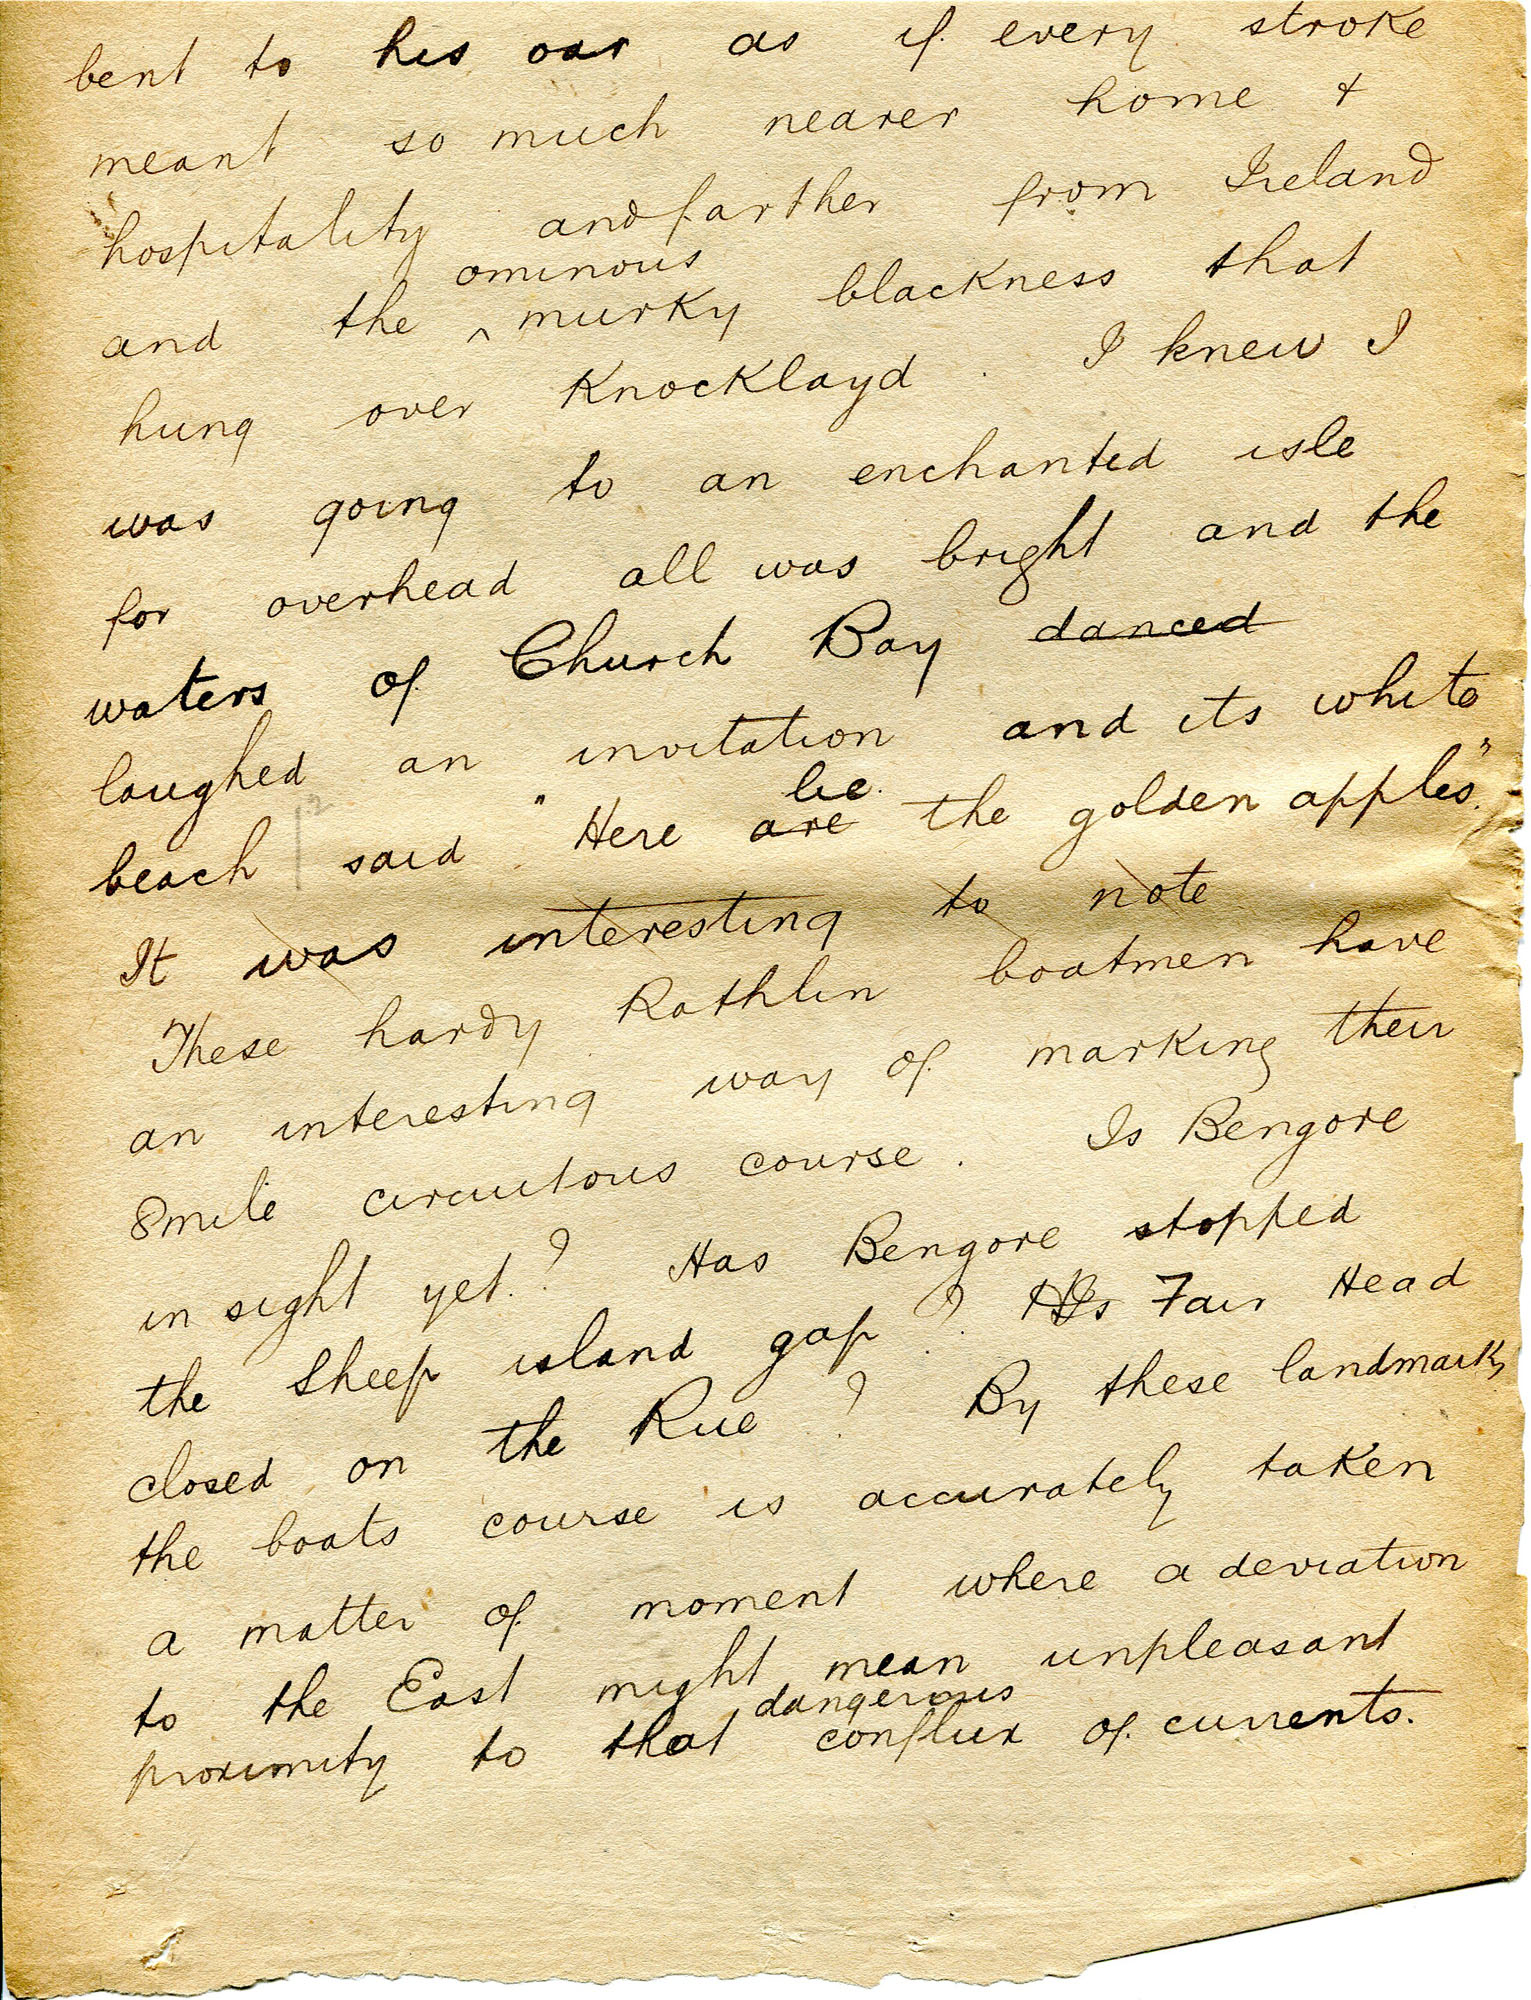 bent to his oar as if every stroke
meant so much nearer home +
hospitality and farther from Ireland
ominous
and the ^ murky blackness that
hung over Knocklayd. I knew I
was going to an enchanted isle
for overhead all was bright and the
waters of Church Bay danced
laughed an invitation and its white
lie
beach said "Here are the golden apples."
It was interesting to note
These hardy Rathlin boatmen have
an interesting way of marking their
8 mile circuitous course. Is Bengore
in sight yet? Has Bengore stopped
the Sheep island gap? Is Fair Head
closed on the Rue? By these landmarks
the boats course is accurately taken
a matter of moment where a deviation
to the East might mean unpleasant
dangerous
proximity to that conflux of currents.